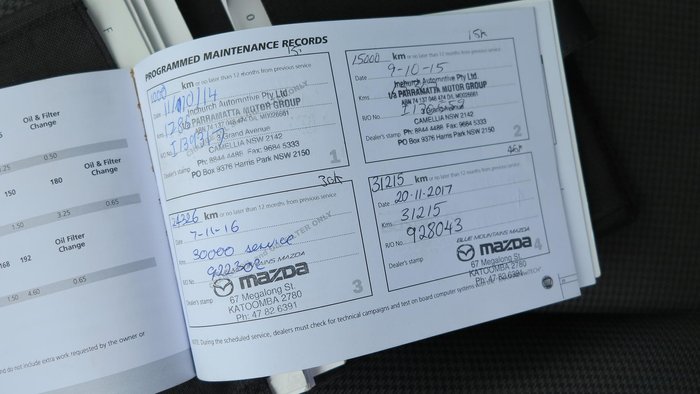 Oil & Filter
Change
0.25 0.50
150 180 Oil & Filter
Change
1.50 3.25 0.65
168 192 Oil Filter
Change
1.50 4.60 0.65
do not include extra work requested by the owner or
PROGRAMMED MAINTENANCE RECORDS
km or no later than 12 months from previous service
Date 11/10/14
Inchurch Automotive Pty Ltd
PARRAMATTA MOTOR GROUP
ABN 74 137 046 474 D/L MD026681
R/O No.
Grand Avenue
CAMELLIA NSW 2142
Ph: 8844 4488 Fax: 9684 5333
PO Box 9376 Harris Park NSW 2150
Dealer's stamp
1
15K
15000 km or no later than 12 months from previous service
Date 9-10-15
Inchurch Automotive Pty Ltd
t/a PARRAMATTA MOTOR GROUP
ABN 74 137 046 474 D/L MD026681
R/O No.
Grand Avenue
CAMELLIA NSW 2142
Ph: 8844 4488 Fax: 9684 5333
PO Box 9376 Harris Park NSW 2150
Dealer's stamp
2
30K
km or no later than 12 months from previous service
Date 7-11-16
Kms
30000 service
R/O No.
MAZDA
mazda
67 Megalong St.
KATOOMBA 2780
Ph: 47 82 6391
Dealer's stamp
3
31215 km or no later than 12 months from previous service
Date 20-11-2017
Kms 31215
R/O No. 928043
BLUE MOUNTAINS MAZDA
mazda
67 Megalong St.
KATOOMBA 2780
Ph: 47 82 6391
Dealer's stamp
4
NOTE: During the scheduled service, dealers must check for technical campaigns and test on board computer systems